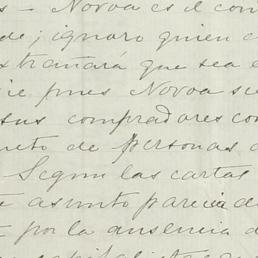 s – Novoa es el con
de; ignoro quien e
xtrañará que sea e
ie pues Novoa si
sus compradores con
reto de personas d
Segun las cartas
asunto parecia de
por la ausencia d